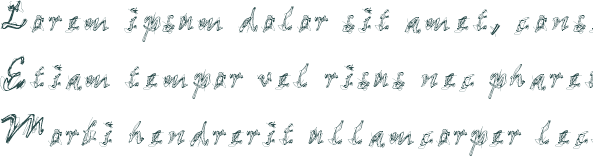 Lorem ipsum dolor sit amet, cons
Etiam tempor vel risus nec phare
Morbi hendrerit ullamcorper leo